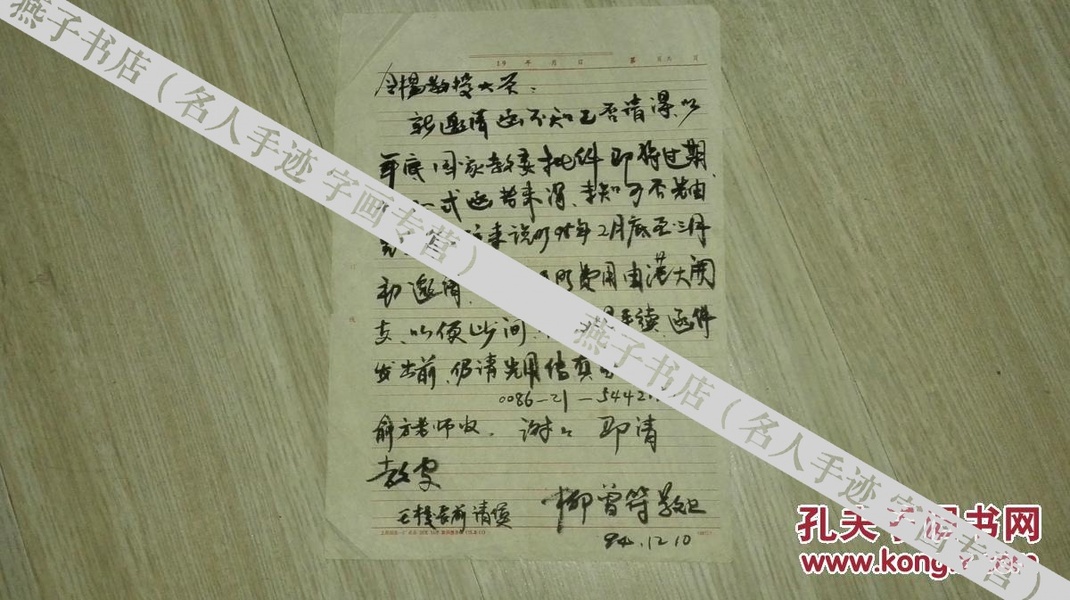 19 年 月 日 第 页共 页
令扬教授大鉴：
邀请函不知已否请得,以
年底国家教委批件即将过期,
式函若未得,未知可否先由
来说明95年2月底至三月
初邀请, 费用由港大开
支,以便此间 手续,函件
发出前,仍请先用传真
0086-21-5442
俞方老师收. 谢谢 即请
教安
王校长前请候
柳曾符敬上
94.12.10
燕子书店(名人手迹 字画专营)
燕子书店(名人手迹 字画专营)
孔夫子旧书网
www.kongfz.com